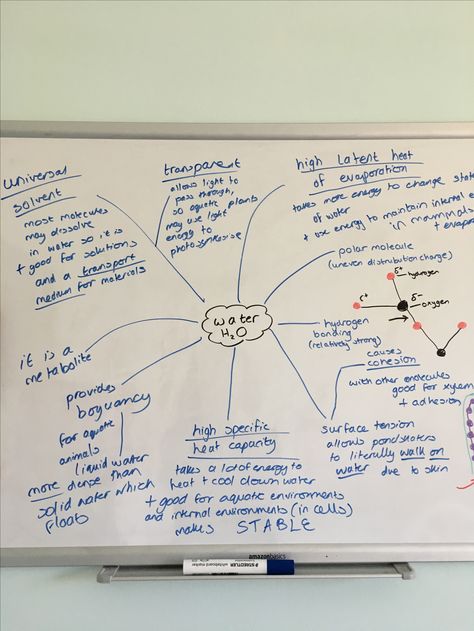 universal
solvent
most molecules
may dissolve
in water so it is
+ good for solutions
and a transport
medium for materials
transparent
allows light to
pass through,
so aquatic plants
may use light
energy to
photosynthesise
high latent heat
of evaporation
takes more energy to change stat
of water
+ use energy to maintain internal
in mammal
+ evapor
polar molecule
(uneven distribution charge)
δ+ hydrogen
δ+
δ-
oxygen
water
H₂O
hydrogen
bonding
(relatively strong)
causes
cohesion
with other molecules
good for xylem
+ adhesion
surface tension
allows pondskaters
to literally walk on
water due to skin
high specific
heat capacity
takes a lot of energy to
heat + cool down water
+ good for aquatic environments
and internal environments (in cells)
makes STABLE
it is a
metabolite
provides
boyuancy
for aquatic
animals
liquid water
more dense than
solid water which
floats
amazonbasics
STAEDTLER
whiteboard marker